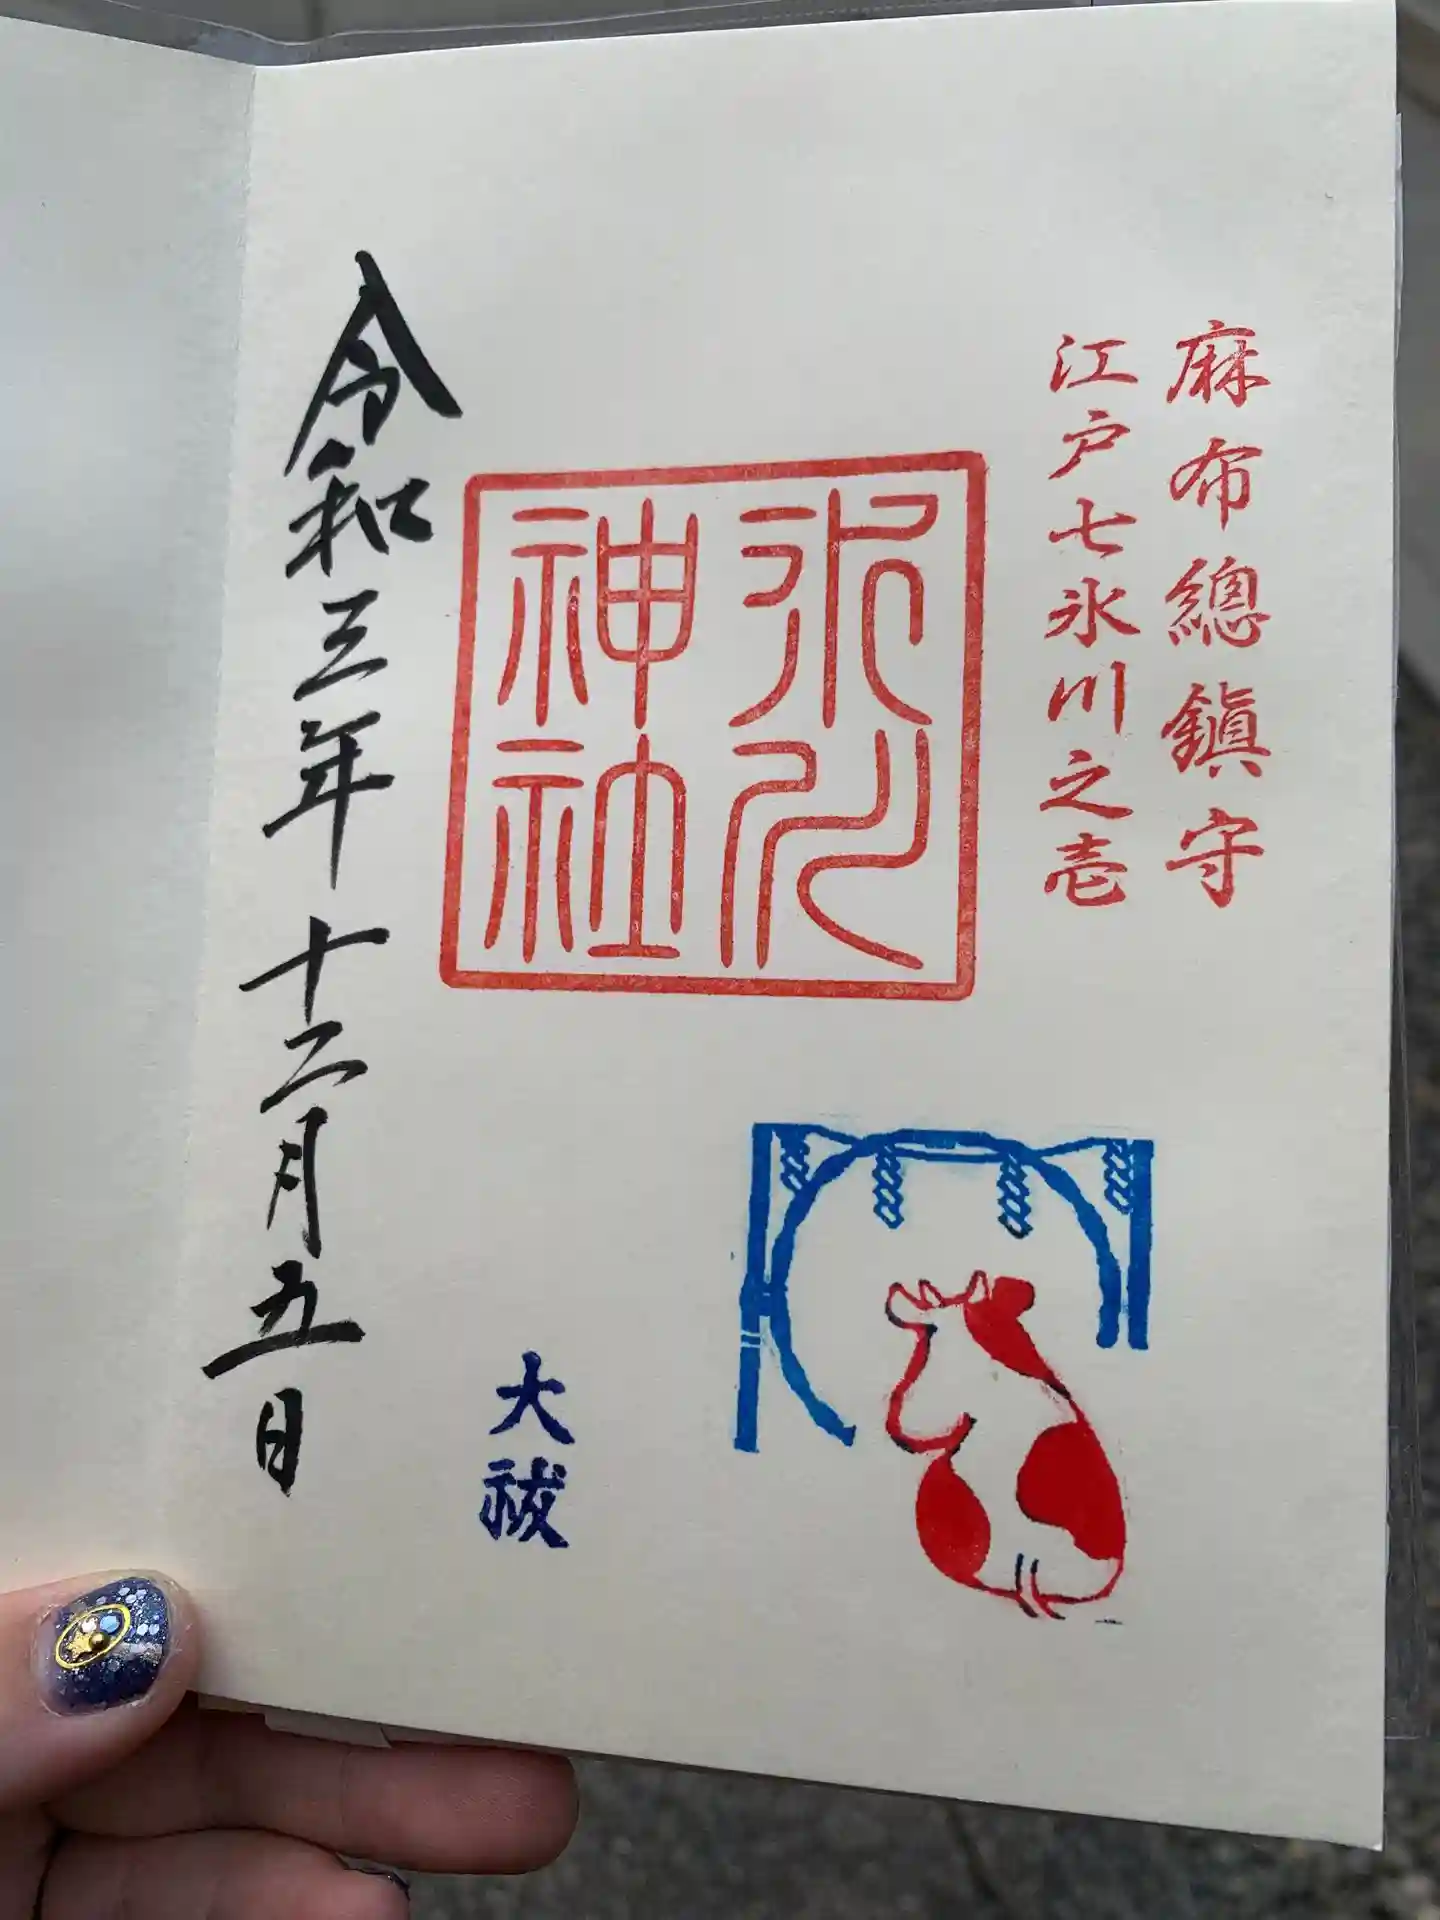 麻布總鎭守
江戸七氷川之壱
氷川
神社
大祓
令和三年十二月五日